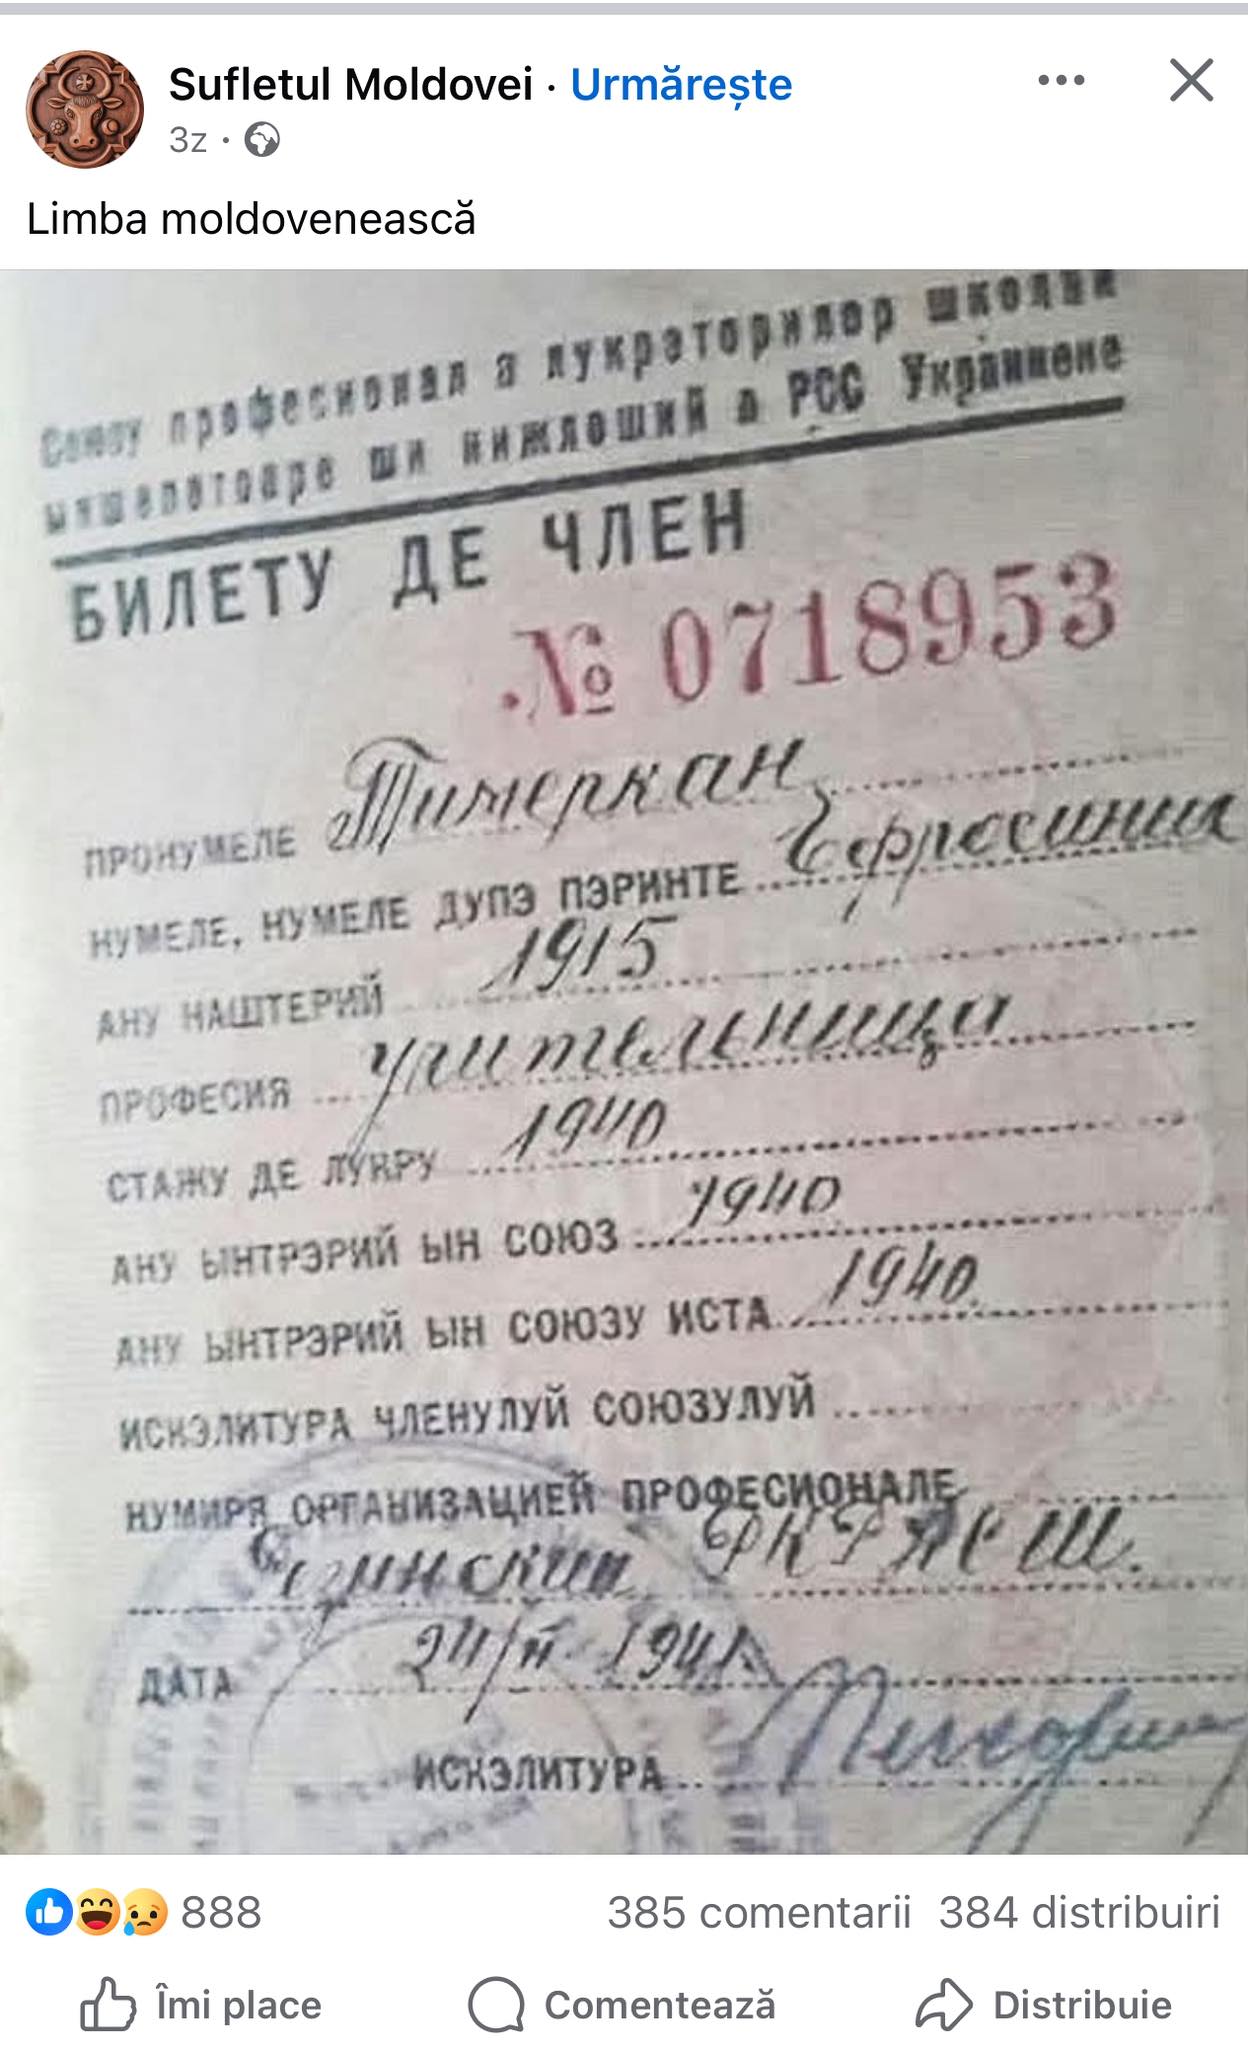 Sufletul Moldovei · Urmărește
3z ·
Limba moldovenească
Союзу професионал а лукраторилор школий
ши нижлоший а РСС Украинене
БИЛЕТУ ДЕ ЧЛЕН
№ 0718953
ПРОНУМЕЛЕ Тимеркан
НУМЕЛЕ, НУМЕЛЕ ДУПЭ ПЭРИНТЕ
АНУ НАШТЕРИЙ 1915
ПРОФЕСИЯ учительница
СТАЖУ ДЕ ЛУКРУ 1940
АНУ ЫНТРЭРИЙ ЫН СОЮЗ 1940
АНУ ЫНТРЭРИЙ ЫН СОЮЗУ ИСТА 1940
ИСКЭЛИТУРА ЧЛЕНУЛУЙ СОЮЗУЛУЙ
НУМИРЯ ОРГАНИЗАЦИЕЙ ПРОФЕСИОНАЛЕ
ДАТА 1941
ИСКЭЛИТУРА
888 385 comentarii 384 distribuiri
Îmi place Comentează Distribuie